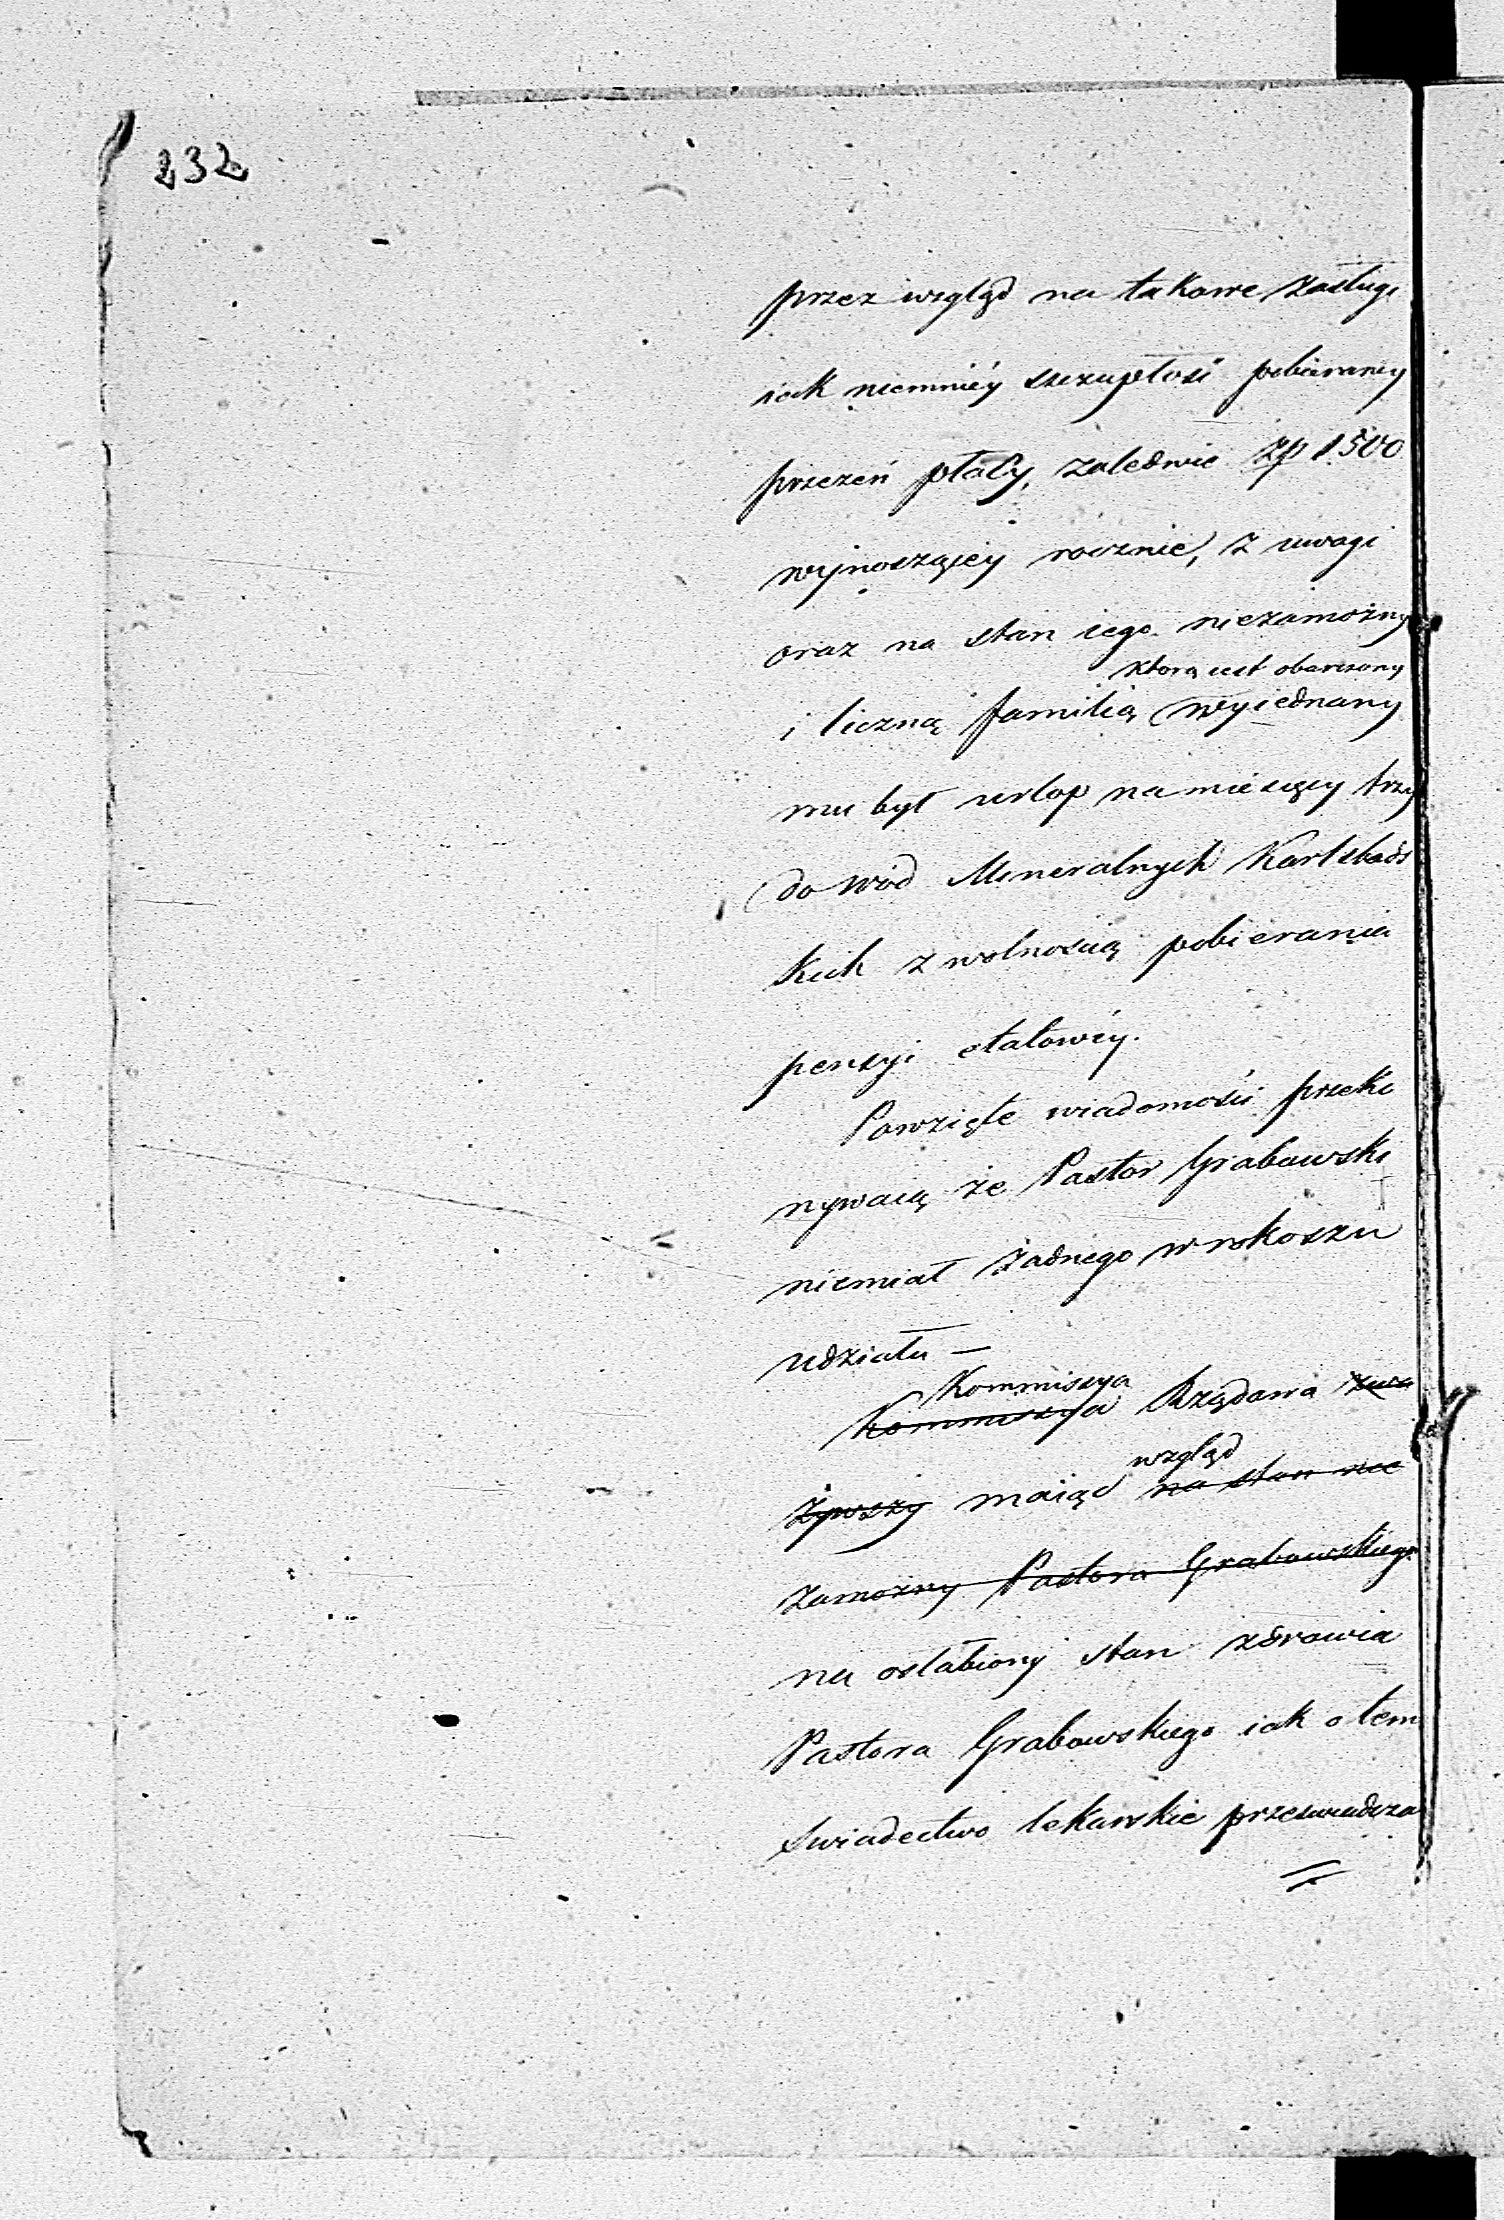 232
przez wzgląd na takowe zasługi
iak niemniéy szczupłość pobieraney
przezeń płacy, zaledwie zp 1500
wynoszącey rocznie, z uwagi
oraz na stan iego niezamożny
którą iest obarczony
i liczną familią wyiednany
mu był urlop na miesięcy trzy
do wód Mineralnych Karlsbads
kich z wolnością pobierania
pensyi etatowéy.
Powzięte wiadomości przeko
nywaią że Pastor Grabowski
niemiał żadnego w rokoszu
udziału —
Kommissya
Kommissya Rządowa zwa
żywszy maiąc na stan nie
względ
zamożny Pastora Grabowskiego
na osłabiony stan zdrowia
Pastora Grabowskiego iak o tem
świadectwo lekarskie przeświadcza